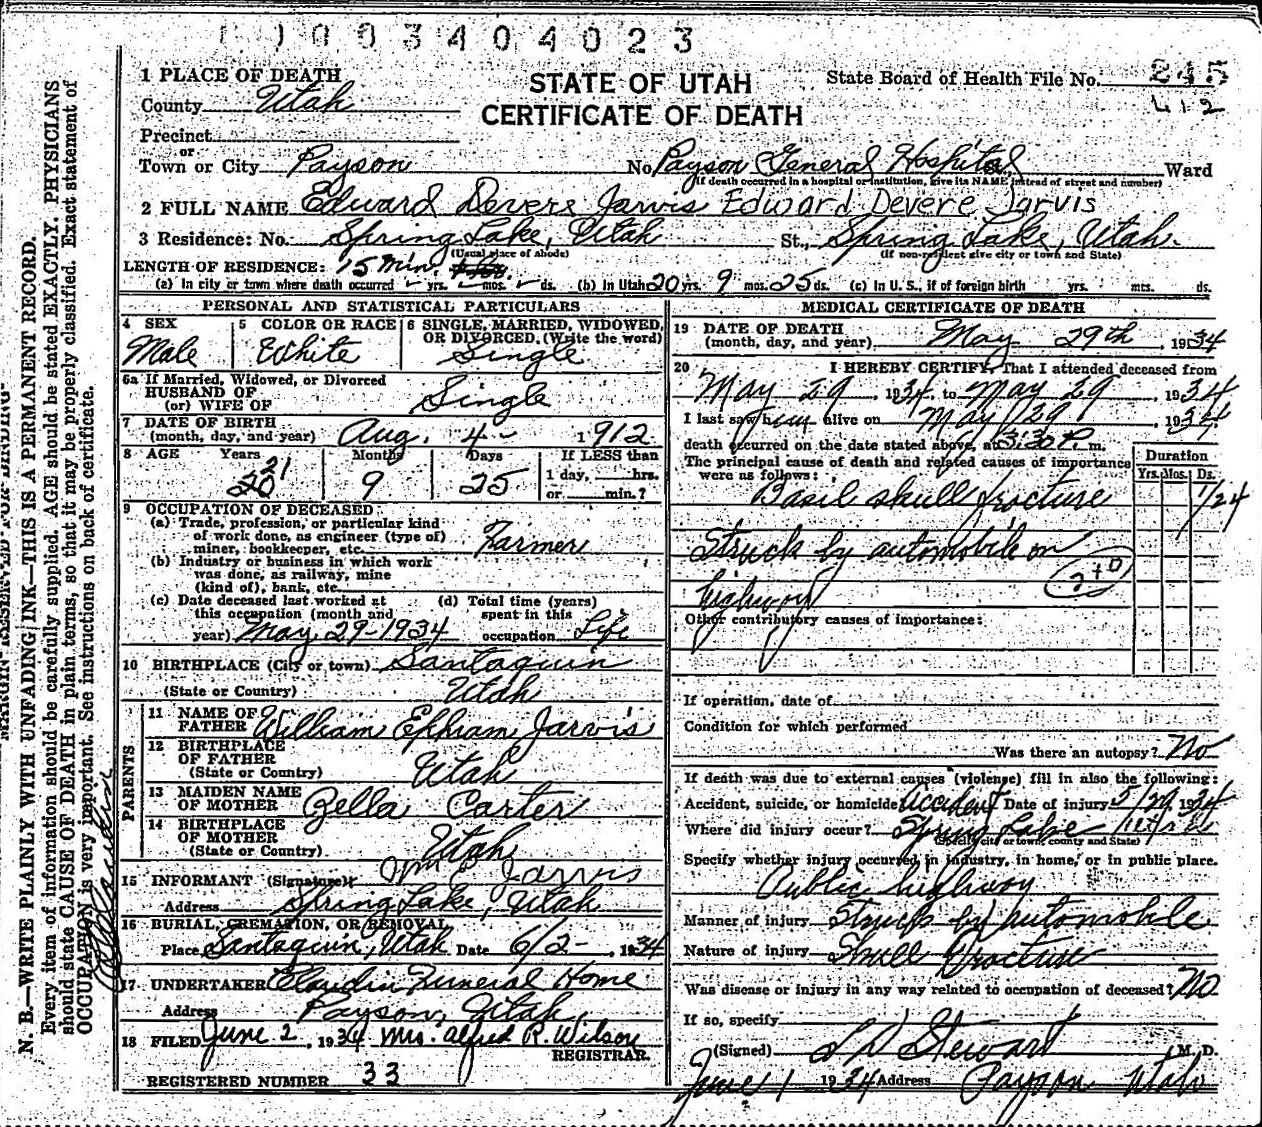 003404023
1 PLACE OF DEATH
County Utah
STATE OF UTAH
CERTIFICATE OF DEATH
State Board of Health File No. 245
412
Precinct
or
Town or City Payson No Payson General Hospital Ward
(If death occurred in a hospital or institution, give its NAME instead of street and number)
2 FULL NAME Edward Devere Jarvis Edward Devere Jarvis
3 Residence: No. Spring Lake, Utah St., Spring Lake, Utah.
(Usual place of abode) (If non-resident give city or town and State)
LENGTH OF RESIDENCE: 15 min.
(a) In city or town where death occurred yrs. mos. ds. (b) In Utah 20 yrs. 9 mos. 25 ds. (c) In U. S., if of foreign birth yrs. mos. ds.
PERSONAL AND STATISTICAL PARTICULARS
4 SEX Male
5 COLOR OR RACE White
6 SINGLE, MARRIED, WIDOWED, OR DIVORCED. (Write the word) Single
6a If Married, Widowed, or Divorced
HUSBAND OF
(or) WIFE OF Single
7 DATE OF BIRTH
(month, day, and year) Aug. 4- 1912
8 AGE Years Months Days If LESS than
20 21 9 25 1 day, hrs.
or min.?
9 OCCUPATION OF DECEASED:
(a) Trade, profession, or particular kind
of work done, as engineer (type of)
miner, bookkeeper, etc. Farmer
(b) Industry or business in which work
was done, as railway, mine
(kind of), bank, etc.
(c) Date deceased last worked at
this occupation (month and
year) May 29-1934
(d) Total time (years)
spent in this
occupation Life
10 BIRTHPLACE (City or town) Santaquin
(State or Country) Utah
PARENTS
11 NAME OF
FATHER William Ephram Jarvis
12 BIRTHPLACE
OF FATHER
(State or Country) Utah
13 MAIDEN NAME
OF MOTHER Zella Carter
14 BIRTHPLACE
OF MOTHER
(State or Country) Utah
15 INFORMANT (Signature) Wm E Jarvis
Address Spring Lake, Utah
16 BURIAL, CREMATION, OR REMOVAL
Place Santaquin, Utah Date 6/2- 1934
17 UNDERTAKER Claudin Funeral Home
Address Payson, Utah.
18 FILED June 2, 1934 Mrs. Alfred R. Wilson
REGISTRAR.
REGISTERED NUMBER 33
MEDICAL CERTIFICATE OF DEATH
19 DATE OF DEATH
(month, day, and year) May 29th, 1934
20 I HEREBY CERTIFY, That I attended deceased from
May 29, 1934, to May 29, 1934
I last saw him alive on May 29, 1934.
death occurred on the date stated above, at 3:30 P. m.
The principal cause of death and related causes of importance
were as follows:
Duration
Yrs. Mos. Ds.
Basil skull fracture 1/24
Struck by automobile on
highway
210
Other contributory causes of importance:
If operation, date of
Condition for which performed
Was there an autopsy? No
If death was due to external causes (violence) fill in also the following:
Accident, suicide, or homicide Accident Date of injury 5/29 1934
Where did injury occur? Spring Lake
(Specify city or town, county and State)
Specify whether injury occurred in industry, in home, or in public place.
Public highway
Manner of injury Struck by automobile
Nature of injury Skull Fracture
Was disease or injury in any way related to occupation of deceased? No
If so, specify
(Signed) L D Stewart M. D.
June 1 1934 Address Payson Utah
MARGIN RESERVED FOR BINDING
N. B.—WRITE PLAINLY WITH UNFADING INK—THIS IS A PERMANENT RECORD.
Every item of information should be carefully supplied. AGE should be stated EXACTLY. PHYSICIANS
should state CAUSE OF DEATH in plain terms, so that it may be properly classified. Exact statement of
OCCUPATION is very important. See instructions on back of certificate.